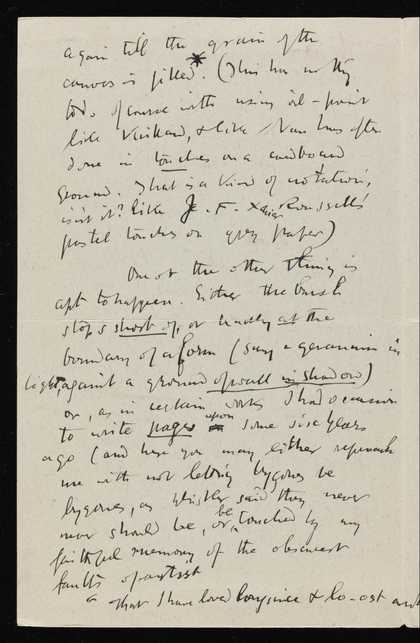 again till the grain of the
canvas is filled. (This has nothing
to do of course with using oil-paint
like Vuillard, & like Van   often
done in touches on a cardboard
ground. That is a kind of notation,
isn't it? like   K. -X avier Roussel's
pastel touches on grey paper)
One or the other thing is
apt to happen. Either the brush
stops short of, or exactly at the
boundary of a form (say a geranium in
light, against a ground of wall in shadow)
or, as in certain works I had occasion
to write pages upon some six years
ago (and here you may either reproach
me with not letting bygones be
bygones, as Whistler said they never
never should be, or be touched by my
faithful memory of the obscurest
faults of artist
a that I have loved long since & lost